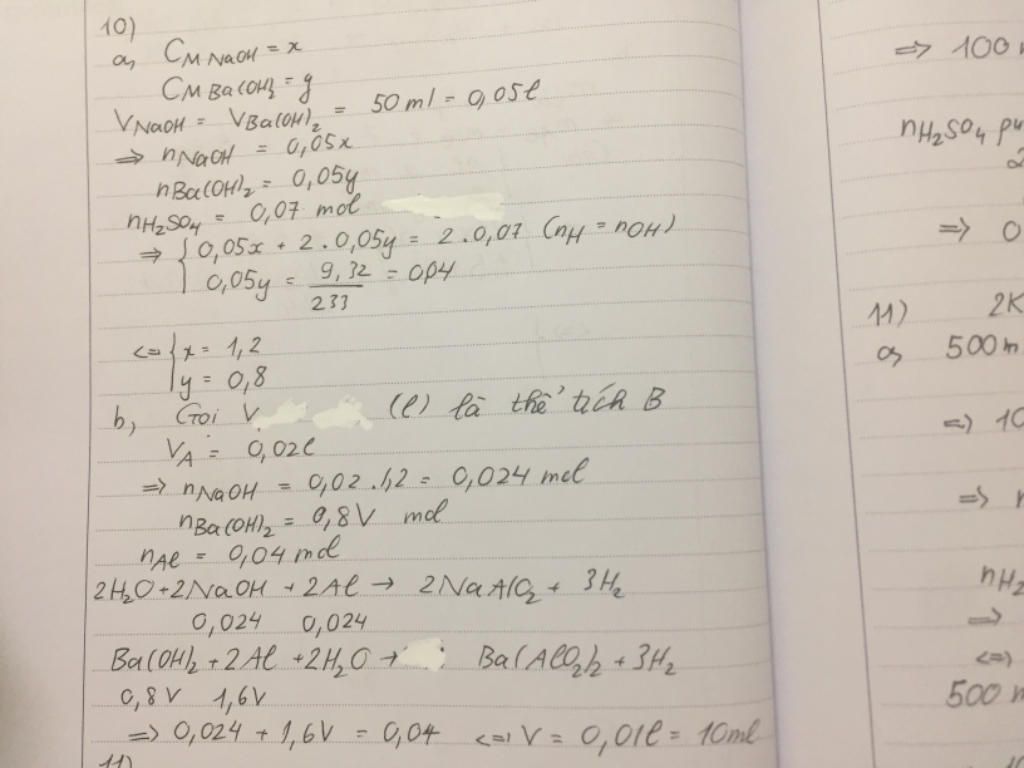 10)
a, CM NaOH = x
CM Ba(OH)2 = y
VNaOH = VBa(OH)2 = 50 ml = 0,05l
=> nNaOH = 0,05x
nBa(OH)2 = 0,05y
nH2SO4 = 0,07 mol
=> { 0,05x + 2.0,05y = 2.0,07 (nH = nOH)
0,05y = 9,32/233 = 0,04
<=> { x = 1,2
y = 0,8
b, Gọi V (l) là thể tích B
VA = 0,02l
=> nNaOH = 0,02.1,2 = 0,024 mol
nBa(OH)2 = 0,8V mol
nAl = 0,04 mol
2H2O + 2NaOH + 2Al → 2NaAlO2 + 3H2
0,024 0,024
Ba(OH)2 + 2Al + 2H2O → Ba(AlO2)2 + 3H2
0,8V 1,6V
=> 0,024 + 1,6V = 0,04 <=> V = 0,01l = 10ml
11)
=> 100
nH2SO4
=> 0
11) 2K
a, 500m
=> 10
=>
nH2
=>
<=>
500